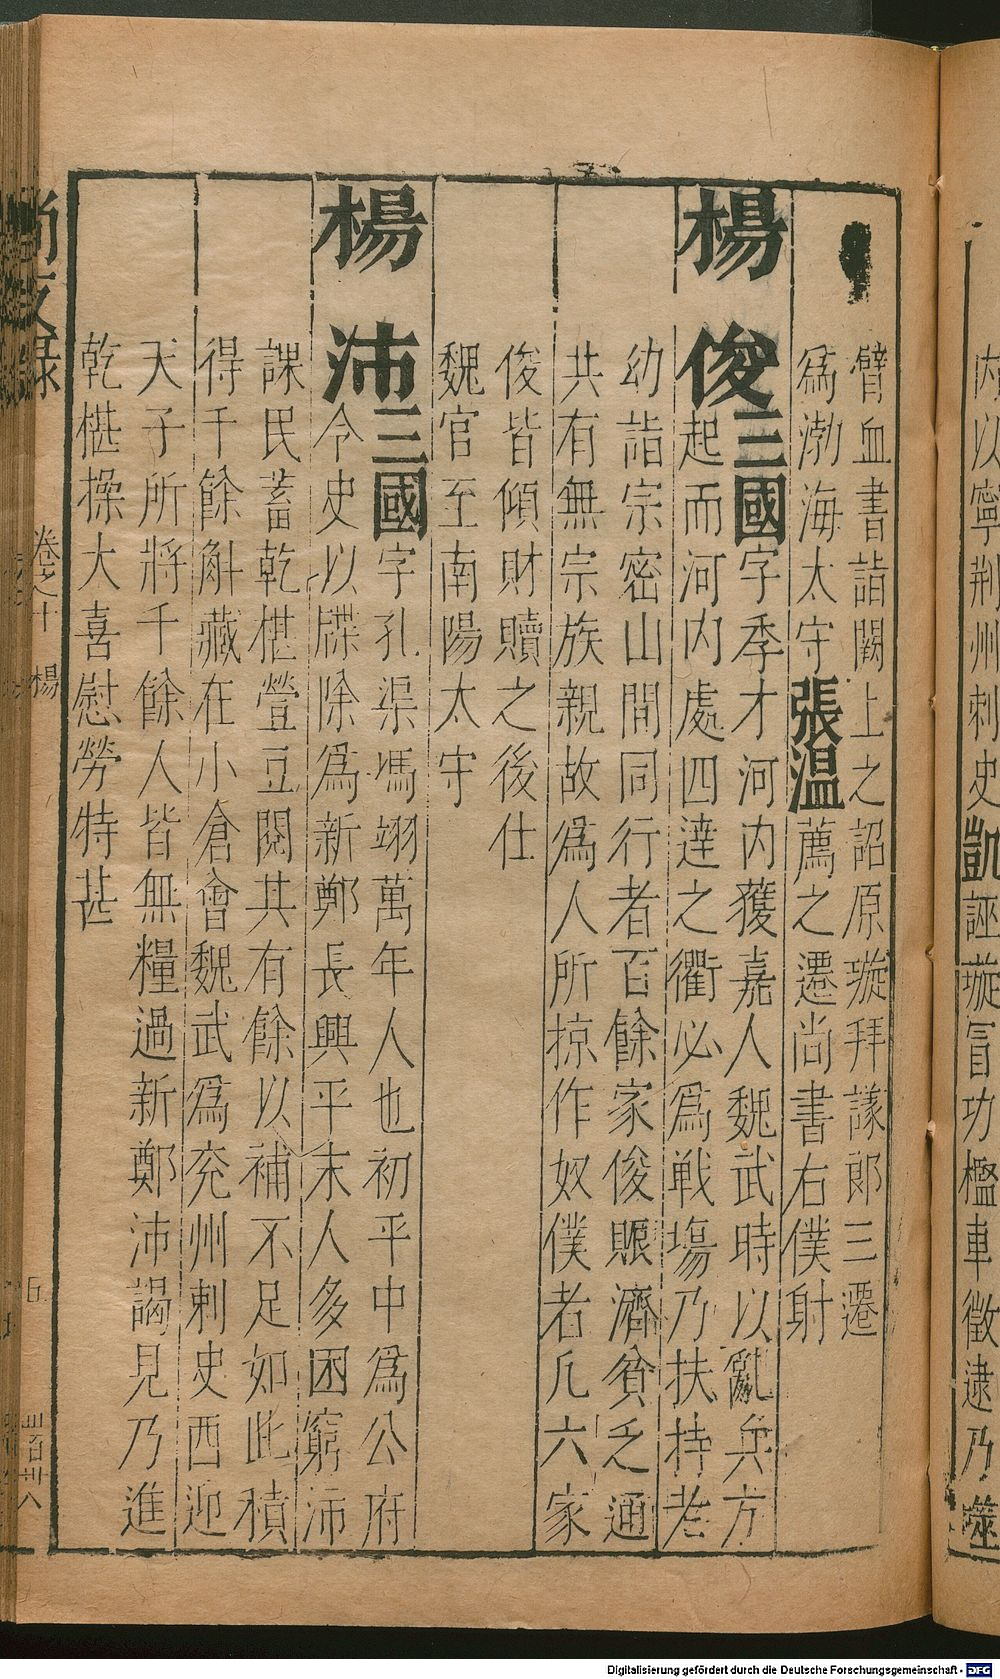 内以寧荆州刺史凱誣璇冒功檻車徵逮乃噬
臂血書詣闕上之詔原璇拜議郎三遷
爲渤海太守張温薦之遷尚書右僕射
楊俊三國字季才河内獲嘉人魏武時以亂兵方
起而河内處四達之衢必爲戰場乃扶持老
幼詣宗密山間同行者百餘家俊賑濟貧乏通
共有無宗族親故爲人所掠作奴僕者凡六家
俊皆傾財贖之後仕
魏官至南陽太守
楊沛三國字孔渠馮翊萬年人也初平中爲公府
令史以牒除爲新鄭長興平末人多困窮沛
課民蓄乾椹䝁豆閱其有餘以補不足如此積
得千餘斛藏在小倉會魏武爲兖州刺史西迎
天子所將千餘人皆無糧過新鄭沛謁見乃進
乾椹操大喜慰勞特甚
尚友録
卷之十
楊
三百三八
Digitalisierung gefördert durch die Deutsche Forschungsgemeinschaft - DFG